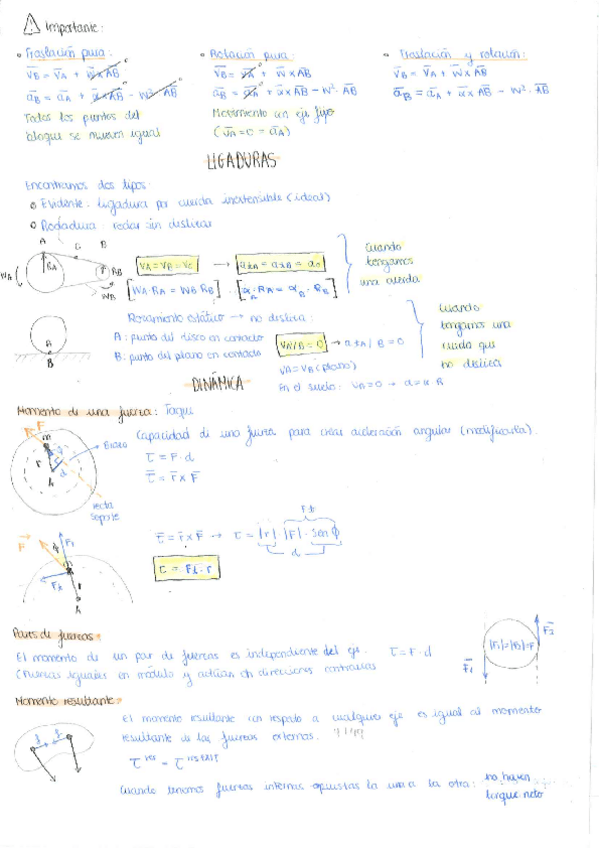 Importante:
• Traslación pura:
v̄B = v̄A + w̄xAB⁰
āB = āA + ᾱxAB⁰ - w²·AB⁰
Todos los puntos del
bloque se mueven igual
• Rotación pura:
v̄B = v̄A⁰ + w̄xAB
āB = āA⁰ + ᾱxAB - w²·AB
Movimiento con eje fijo
(v̄A = 0 = āA)
• Traslación y rotación:
v̄B = v̄A + w̄xAB
āB = āA + ᾱxAB - w²·AB
LIGADURAS
Encontramos dos tipos:
Evidente: ligadura por cuerda inextensible (ideal)
Rodadura: rodar sin deslizar
A C B
WA RA RB WB
VA = VB = VC → 
[WA·RA = WB·RB] [αA·RA = αB·RB]
Cuando
tengamos
una cuerda
Rozamiento estático → no desliza:
A: punto del disco en contacto
B: punto del plano en contacto
A
B
VA/B = 0 → A/B = 0
VA = VB (plano)
En el suelo: VB = 0 → a = α·R
Cuando
tengamos una
que
no desliza
DINÁMICA
Momento de una fuerza: Torque
Capacidad de una fuerza para crear aceleración angular (modificarla).
τ = F·d
τ̄ = r̄ x F̄
F
m
r
d
A
Brazo
recta
soporte
τ̄ = r̄ x F̄ → τ = |r| |F|·sen ϕ
d
τ = Ft·r
F̄
Ft
r
A
Pares de fuerzas:
El momento de un par de fuerzas es independiente del eje. τ = F·d
(Fuerzas iguales en módulo y actúan en direcciones contrarias
F̄1
F̄2
Momento resultante:
El momento resultante con respecto a cualquier eje es igual al momento
resultante de las fuerzas externas.
Cuando tenemos fuerzas internas opuestas la una a la otra: no hacen
torque neto